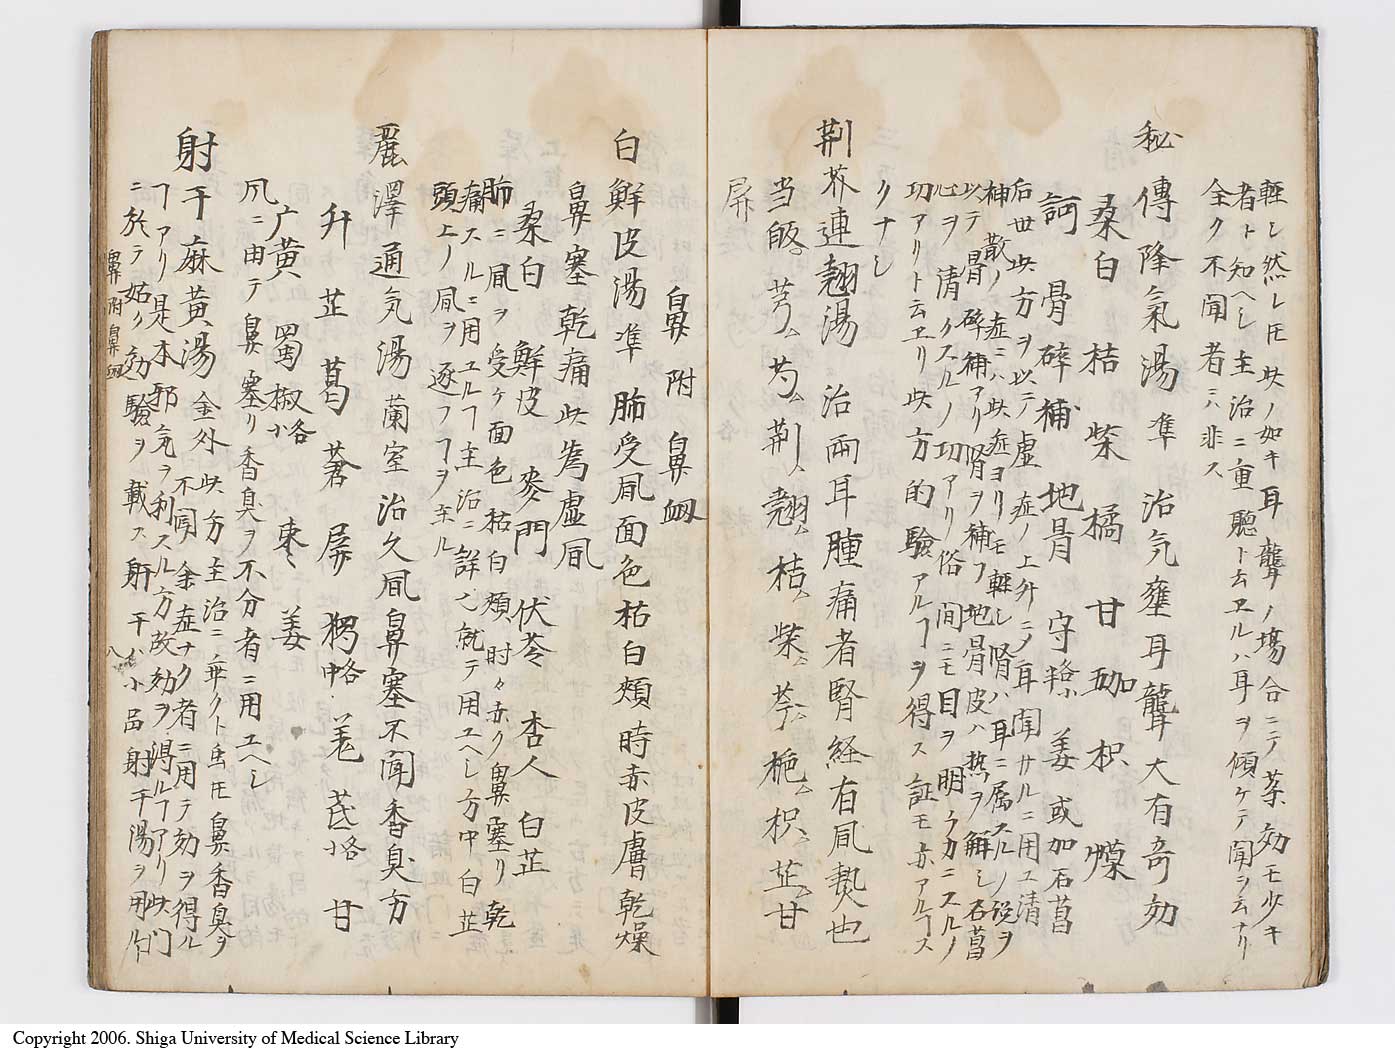 軽シ然レ𪜈此ノ如キ耳聾ノ場合ニテ薬効モ少キ
者ト知ヘシ主治ニ重聴ト云ヱルハ耳ヲ傾ケテ聞ヲ云ナリ
全ク不聞者ニハ非ス
秘傳降氣湯 準 治気壅耳聾大有奇効
桑白 桔 柴 橘 甘 加 枳 𦸅
訶 骨碎補 地骨 守 𭕄各小 姜 或加石菖
后世此方ヲ以テ虚症ノ上升シテノ耳聞サルニ用ユ清
神散ノ症ニハ此症ヨリモ軽シ腎ハ耳ニ属スルノ説ヲ
以テ骨碎補アリ腎ヲ補フ地骨皮ハ熱ヲ解シ石菖
心ヲ清クスルノ功アリ俗間ニモ目ヲ明ラカニスルノ
功アリト云ヱリ此方的驗アルヿヲ得ス証モ亦アルヿス
クナシ
荆芥連翹湯 治兩耳腫痛者腎経有風熱也
当皈 芎 芍 荆 翹 桔 柴 芩 梔 枳 芷 甘
屏
鼻附鼻衄
白鮮皮湯 準 肺受風面色枯白頰時赤皮膚乾燥
鼻塞乾痛此為虚風
桑白 鮮皮 麥門 伏苓 杏人 白芷
肺ニ風ヲ受ケ面色枯白頰時々赤ク鼻塞リ乾
痛スルニ用ユルヿ主治ニ詳也就テ用ユヘシ方中白芷
頭上ノ風ヲ逐フヿヲ主ル
麗澤通気湯 蘭室 治久風鼻塞不聞香臭方
升 芷 葛 蒼 屏 独各中 羗 芪各小 甘
广黄 蜀椒各小 棗 姜
凡ニ由テ鼻塞リ香臭ヲ不分者ニ用ユヘシ
射干麻黄湯 金外 此方主治ニ乖クト虽𪜈鼻香臭ヲ
不聞余症ナク者ニ用テ効ヲ得ル
ヿアリ是本邪気ヲ利スル方故効ヲ得ルヿアリ此門
ニ於テ姑ク効驗ヲ載ス射干ハ小品射干湯ヲ用ル
鼻附鼻衄
八
Copyright 2006. Shiga University of Medical Science Library